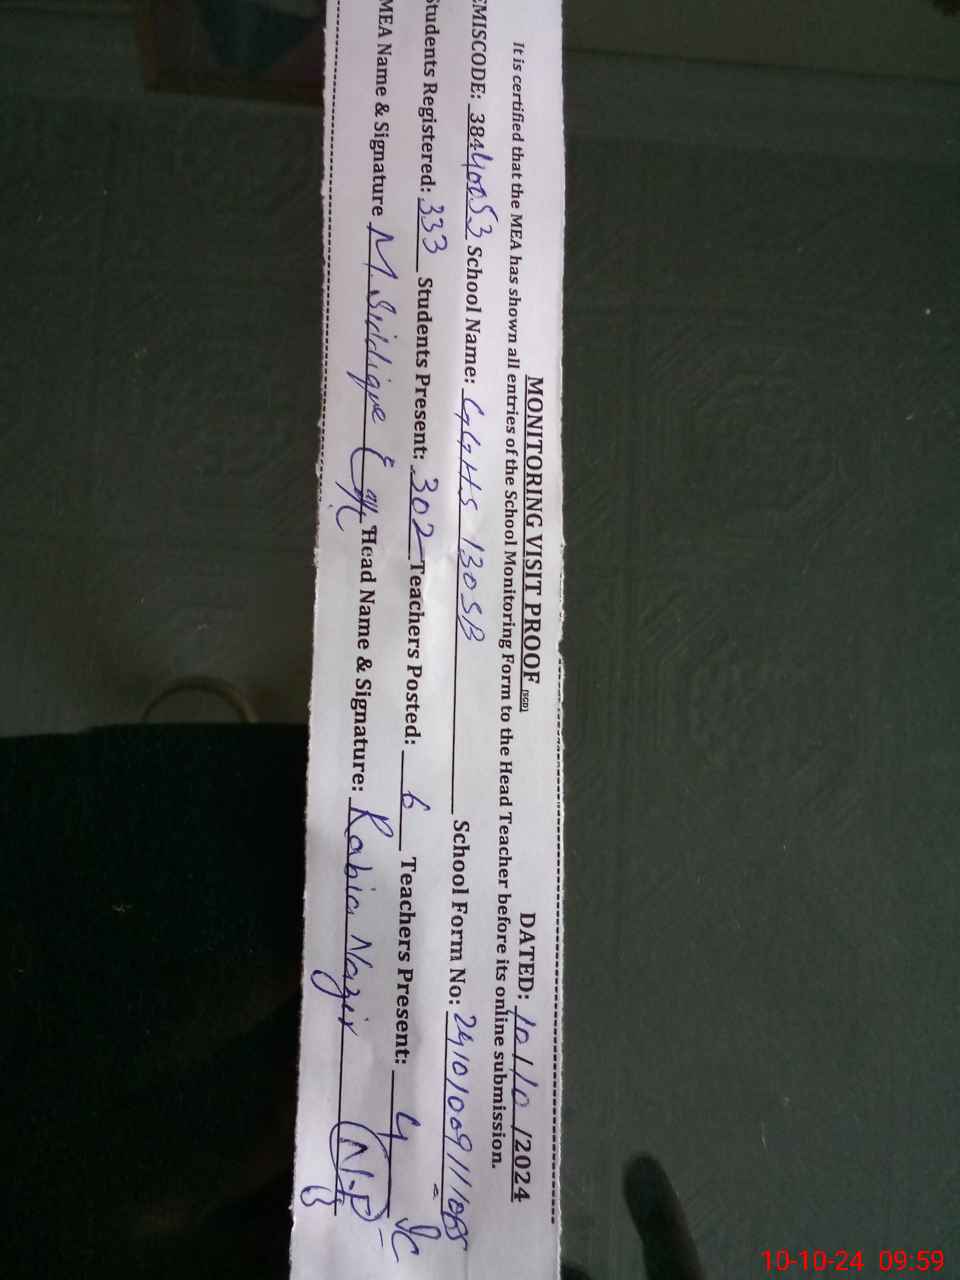 MONITORING VISIT PROOF (SGD) DATED: 10/10/2024
It is certified that the MEA has shown all entries of the School Monitoring Form to the Head Teacher before its online submission.
EMISCODE: 38440053 School Name: GGHS 130SB School Form No:
Students Registered: 333 Students Present: 302 Teachers Posted: 6 Teachers Present: 4
MEA Name & Signature M. Siddique Head Name & Signature: Rabia Nazir
10-10-24 09:59